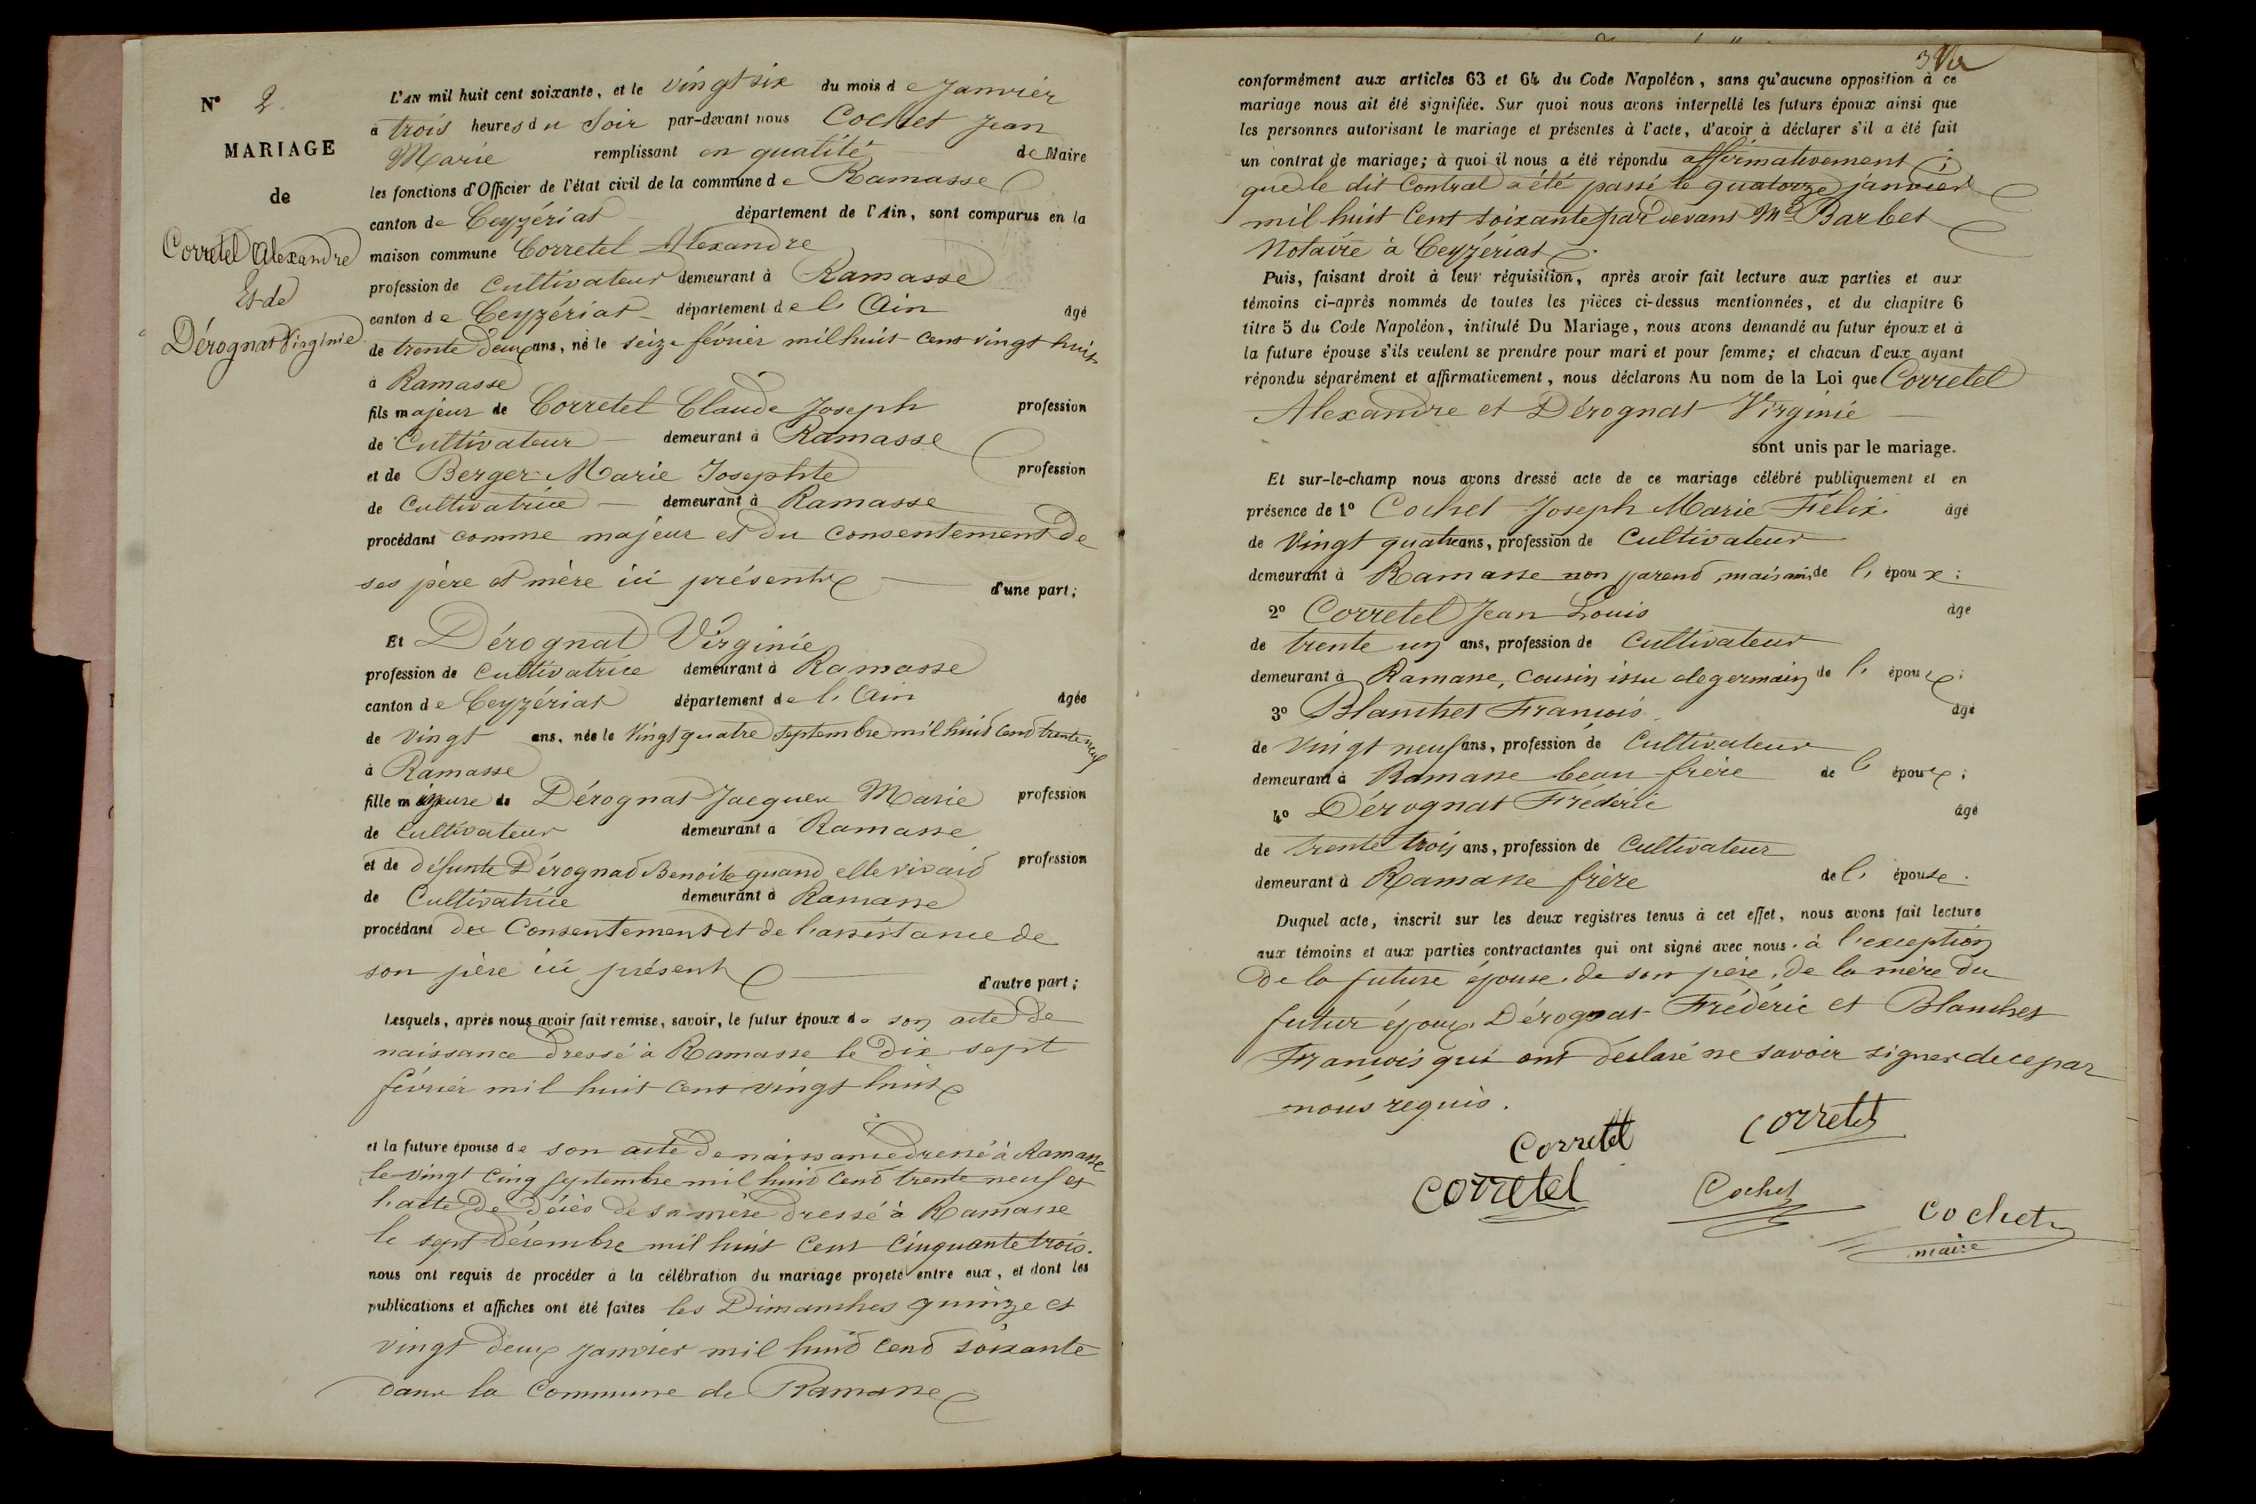 N° 2.
MARIAGE
de
Corretel Alexandre
Et de
Dérognat Virginie
L'AN mil huit cent soixante, et le vingt six du mois de Janvier
à trois heures du Soir par-devant nous Cochet Jean
Marie remplissant en qualité de Maire
les fonctions d'Officier de l'état civil de la commune de Ramasse
canton de Ceyzériat département de l'Ain, sont comparus en la
maison commune Corretel Alexandre
profession de Cultivateur demeurant à Ramasse
canton de Ceyzériat département de l'Ain âgé
de trente deux ans, né le seize février mil huit cent vingt huit
à Ramasse
fils majeur de Corretel Claude Joseph profession
de Cultivateur demeurant à Ramasse
et de Berger Marie Josephte profession
de Cultivatrice demeurant à Ramasse
procédant comme majeur et du consentement de
ses père et mère ici présents d'une part;
Et Dérognat Virginie
profession de Cultivatrice demeurant à Ramasse
canton de Ceyzériat département de l'Ain âgée
de vingt ans, née le vingt quatre septembre mil huit cent trente neuf
à Ramasse
fille mineure de Dérognat Jacques Marie profession
de Cultivateur demeurant à Ramasse
et de défunte Dérognat Benoite quand elle vivait profession
de Cultivatrice demeurant à Ramasse
procédant du Consentement et de l'assistance de
son père ici présent d'autre part;
Lesquels, après nous avoir fait remise, savoir, le futur époux de son acte de
naissance dressé à Ramasse le dix sept
février mil huit cent vingt huit
et la future épouse de son acte de naissance dressé à Ramasse
le vingt cinq septembre mil huit cent trente neuf et
l'acte de décès de sa mère dressé à Ramasse
le sept décembre mil huit cent cinquante trois.
nous ont requis de procéder à la célébration du mariage projeté entre eux, et dont les
publications et affiches ont été faites les Dimanches quinze et
vingt deux janvier mil huit cent soixante
dans la Commune de Ramasse
3
conformément aux articles 63 et 64 du Code Napoléon, sans qu'aucune opposition à ce
mariage nous ait été signifiée. Sur quoi nous avons interpellé les futurs époux ainsi que
les personnes autorisant le mariage et présentes à l'acte, d'avoir à déclarer s'il a été fait
un contrat de mariage; à quoi il nous a été répondu affirmativement;
que le dit Contrat a été passé le quatorze janvier
mil huit cent soixante par devant Me Barbet
Notaire à Ceyzériat.
Puis, faisant droit à leur réquisition, après avoir fait lecture aux parties et aux
témoins ci-après nommés de toutes les pièces ci-dessus mentionnées, et du chapitre 6
titre 5 du Code Napoléon, intitulé Du Mariage, nous avons demandé au futur époux et à
la future épouse s'ils veulent se prendre pour mari et pour femme; et chacun d'eux ayant
répondu séparément et affirmativement, nous déclarons Au nom de la Loi que Corretel
Alexandre et Dérognat Virginie
sont unis par le mariage.
Et sur-le-champ nous avons dressé acte de ce mariage célébré publiquement et en
présence de 1° Cochet Joseph Marie Félix âgé
de vingt quatre ans, profession de Cultivateur
demeurant à Ramasse non parent, mais ami de l'époux;
2° Corretel Jean Louis âgé
de trente un ans, profession de Cultivateur
demeurant à Ramasse, cousin issu de germain de l'époux;
3° Blanchet François âgé
de vingt neuf ans, profession de Cultivateur
demeurant à Ramasse beau-frère de l'époux;
4° Dérognat Frédéric âgé
de trente trois ans, profession de Cultivateur
demeurant à Ramasse frère de l'épouse.
Duquel acte, inscrit sur les deux registres tenus à cet effet, nous avons fait lecture
aux témoins et aux parties contractantes qui ont signé avec nous. à l'exception
de la future épouse, de son père, de la mère du
futur époux, Dérognat Frédéric et Blanchet
François qui ont déclaré ne savoir signer de ce par
nous requis.
Corretel
Corretel
Corretel
Cochet
Cochet
maire